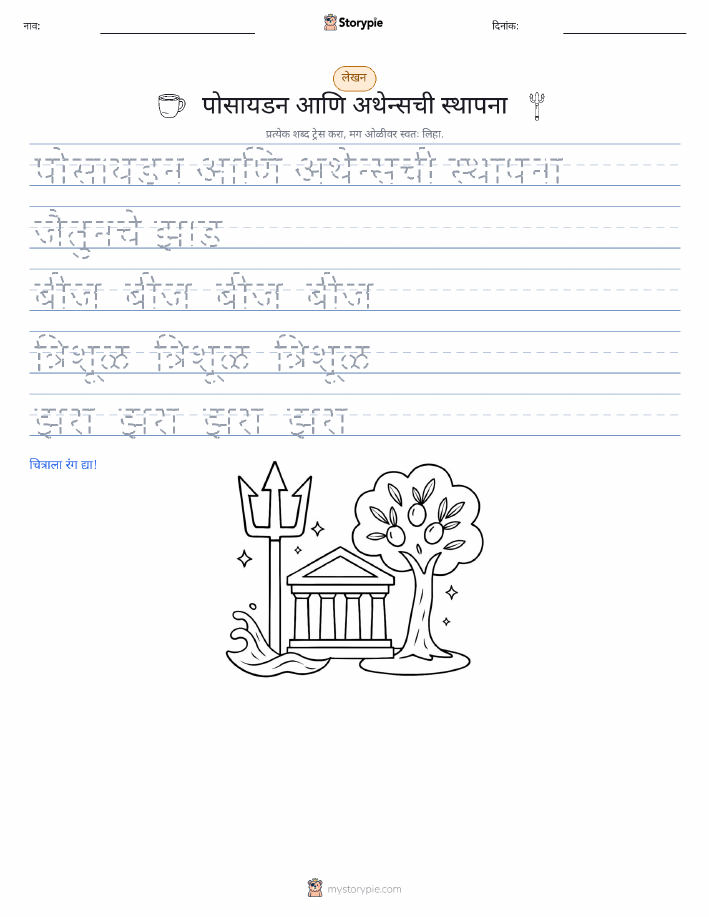 नाव:
Storypie
दिनांक:
लेखन
पोसायडन आणि अथेन्सची स्थापना
प्रत्येक शब्द ट्रेस करा, मग ओळीवर स्वतः लिहा.
पोसायडन आणि अथेन्सची स्थापना
जैतुनचे झाड
बीज बीज बीज बीज
त्रिशूळ त्रिशूळ त्रिशूळ
झरा झरा झरा झरा
चित्राला रंग द्या!
mystorypie.com